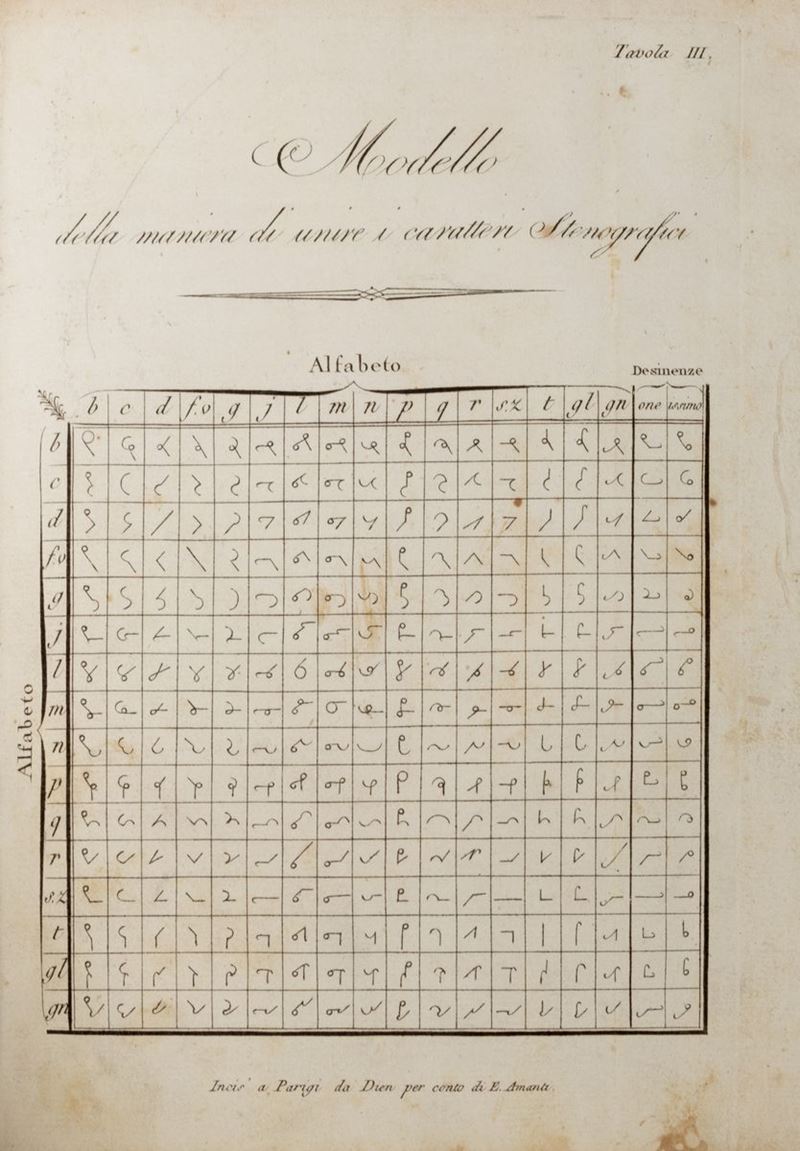 Tavola III.
Modello
della maniera di unire i caratteri Stenografici
Alfabeto
Desinenze
b c d f.v g j l m n p q r s.z t gl gn one issimo
b
c
d
f.v
g
j
l
m
n
p
q
r
s.z
t
gl
gn
Alfabeto
Incis' a Parigi da Dien per conto di E. Amanti.